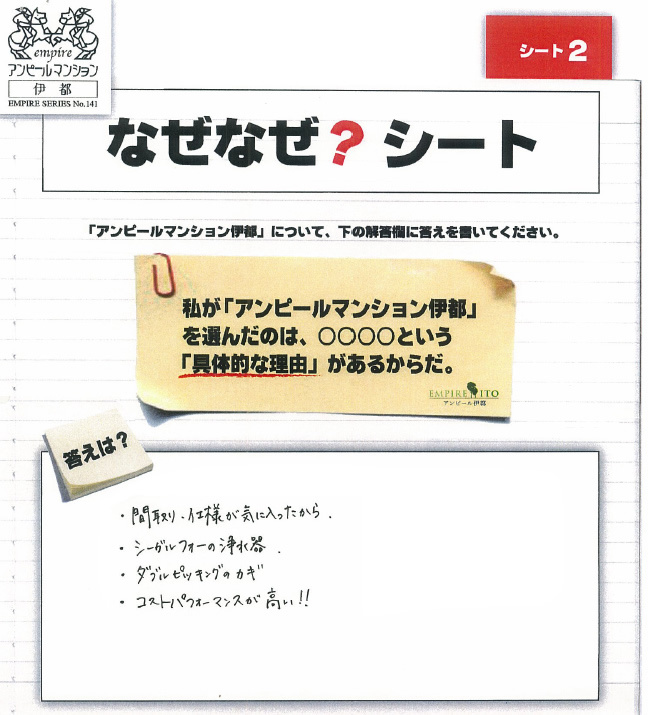 empire
アンピールマンション
伊都
EMPIRE SERIES No.141
シート2
なぜなぜ?シート
「アンピールマンション伊都」について、下の解答欄に答えを書いてください。
私が「アンピールマンション伊都」
を選んだのは、○○○○という
「具体的な理由」があるからだ。
EMPIRE ITO
アンピール伊都
答えは?
・間取り・仕様が気に入ったから.
・シーガルフォーの浄水器.
・ダブルピッキングのカギ
・コストパフォーマンスが高い!!